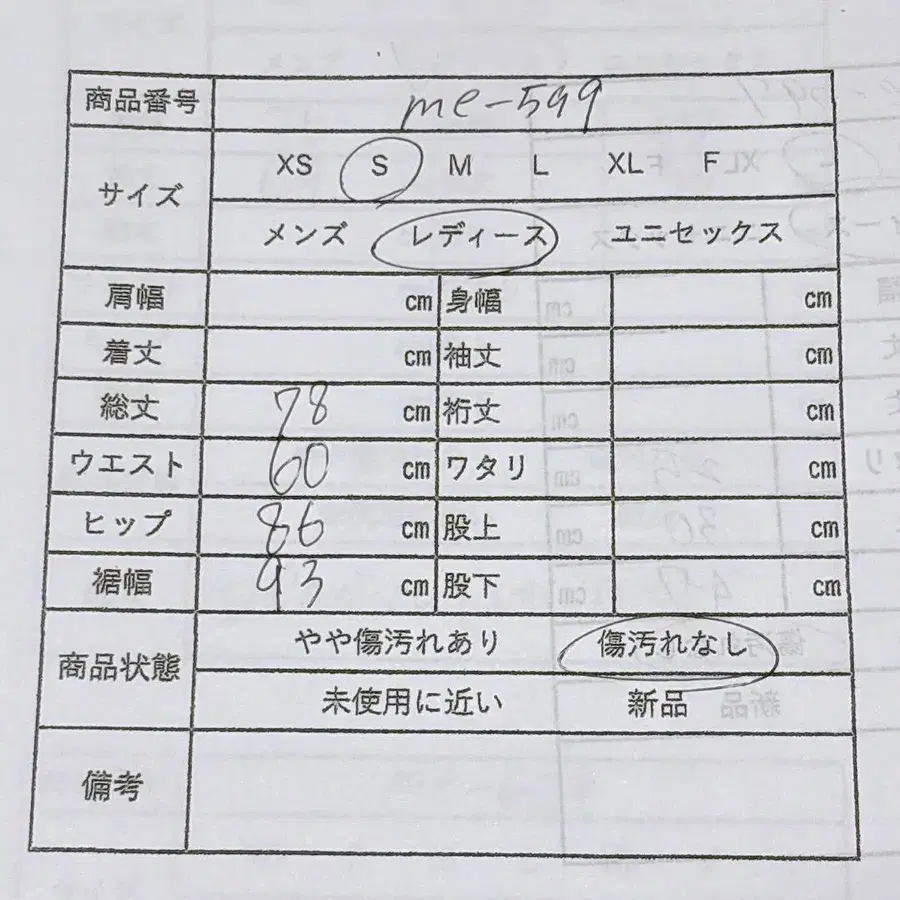 商品番号 me-599
サイズ XS S M L XL F
メンズ レディース ユニセックス
肩幅 cm 身幅 cm
着丈 cm 袖丈 cm
総丈 78 cm 裄丈 cm
ウエスト 60 cm ワタリ cm
ヒップ 86 cm 股上 cm
裾幅 93 cm 股下 cm
商品状態 やや傷汚れあり 傷汚れなし
未使用に近い 新品
備考